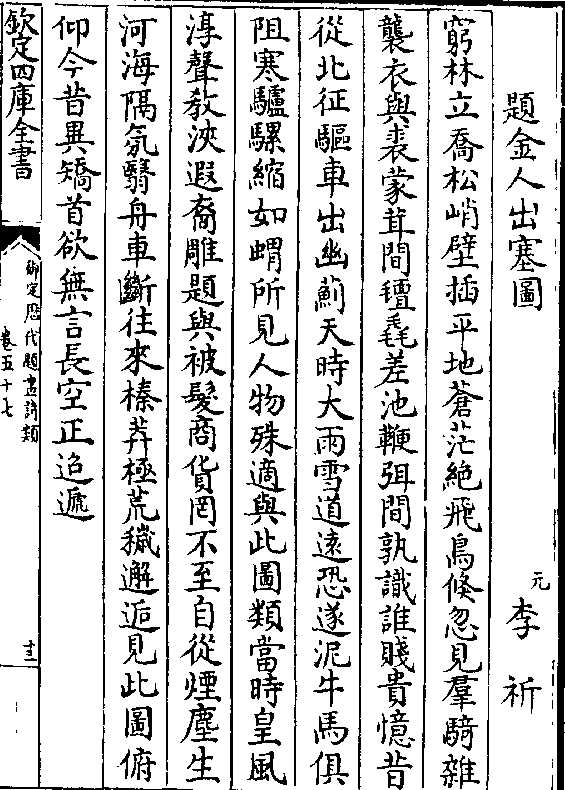 題金人出塞圖
元
李祈
窮林立喬松峭壁插平地蒼茫絶飛鳥倐忽見羣騎雜
襲衣與裘蒙茸間氊毳差池鞭弭間孰識誰賤貴憶昔
從北征驅車出幽薊天時大雨雪道遠恐遂泥牛馬俱
阻寒驢騾縮如蝟所見人物殊適與此圖類當時皇風
淳聲教浹遐裔雕題與被髮商貨罔不至自從煙塵生
河海隔氛翳舟車斷往來榛莽極荒穢邂逅見此圖俯
仰今昔異矯首欲無言長空正迢遞
欽定四庫全書
御定歴代題畫詩類
卷五十七
十三